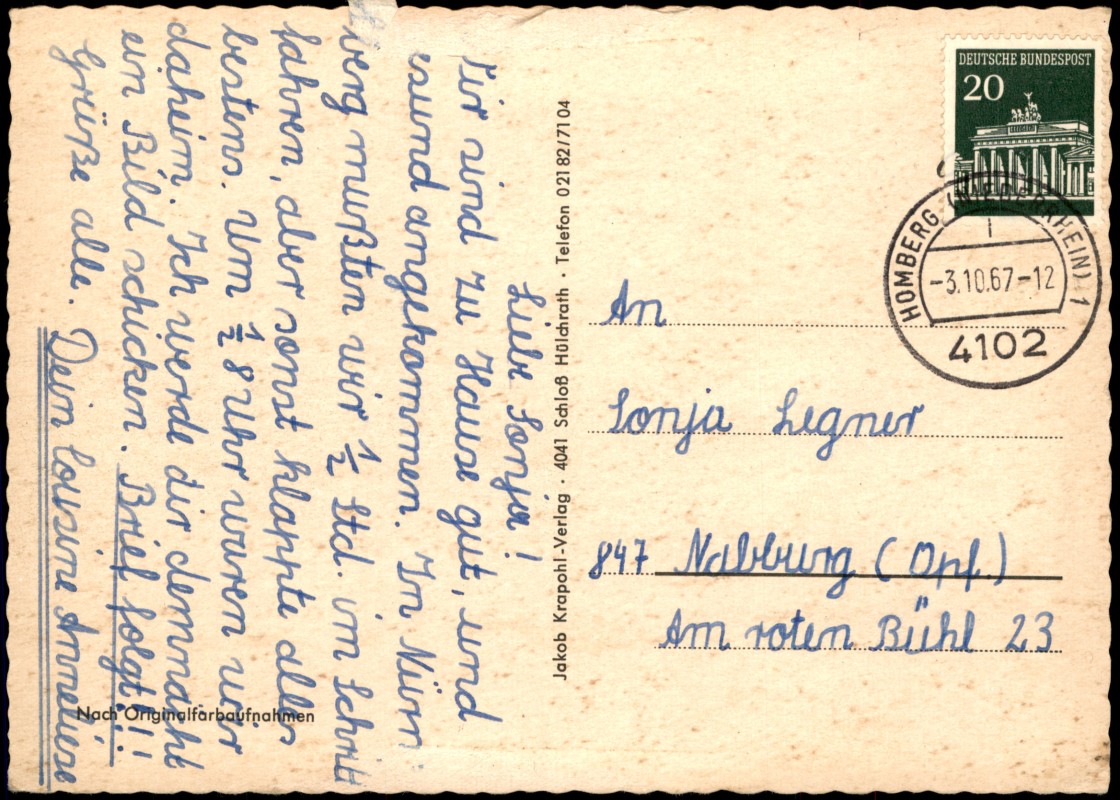 Liebe Sonja!
Wir sind zu Hause gut, und
gesund angekommen. In Nürn
berg mußten wir 1/2 Std. im Schritt
fahren, aber sonst klappte alles
bestens. Um 1/2 8 Uhr waren wir
daheim. Ich werde dir demnächst
ein Bild schicken. Brief folgt!!!
Grüße alle. Dein Cousine Anneliese
Nach Originalfarbaufnahmen
Jakob Krapohl-Verlag · 4041 Schloß Hülchrath · Telefon 02182/7104
DEUTSCHE BUNDESPOST
20
HOMBERG (NIEDERRHEIN) 1
-3.10.67-12
4102
An
Sonja Legner
847 Nabburg (Opf.)
Am roten Bühl 23